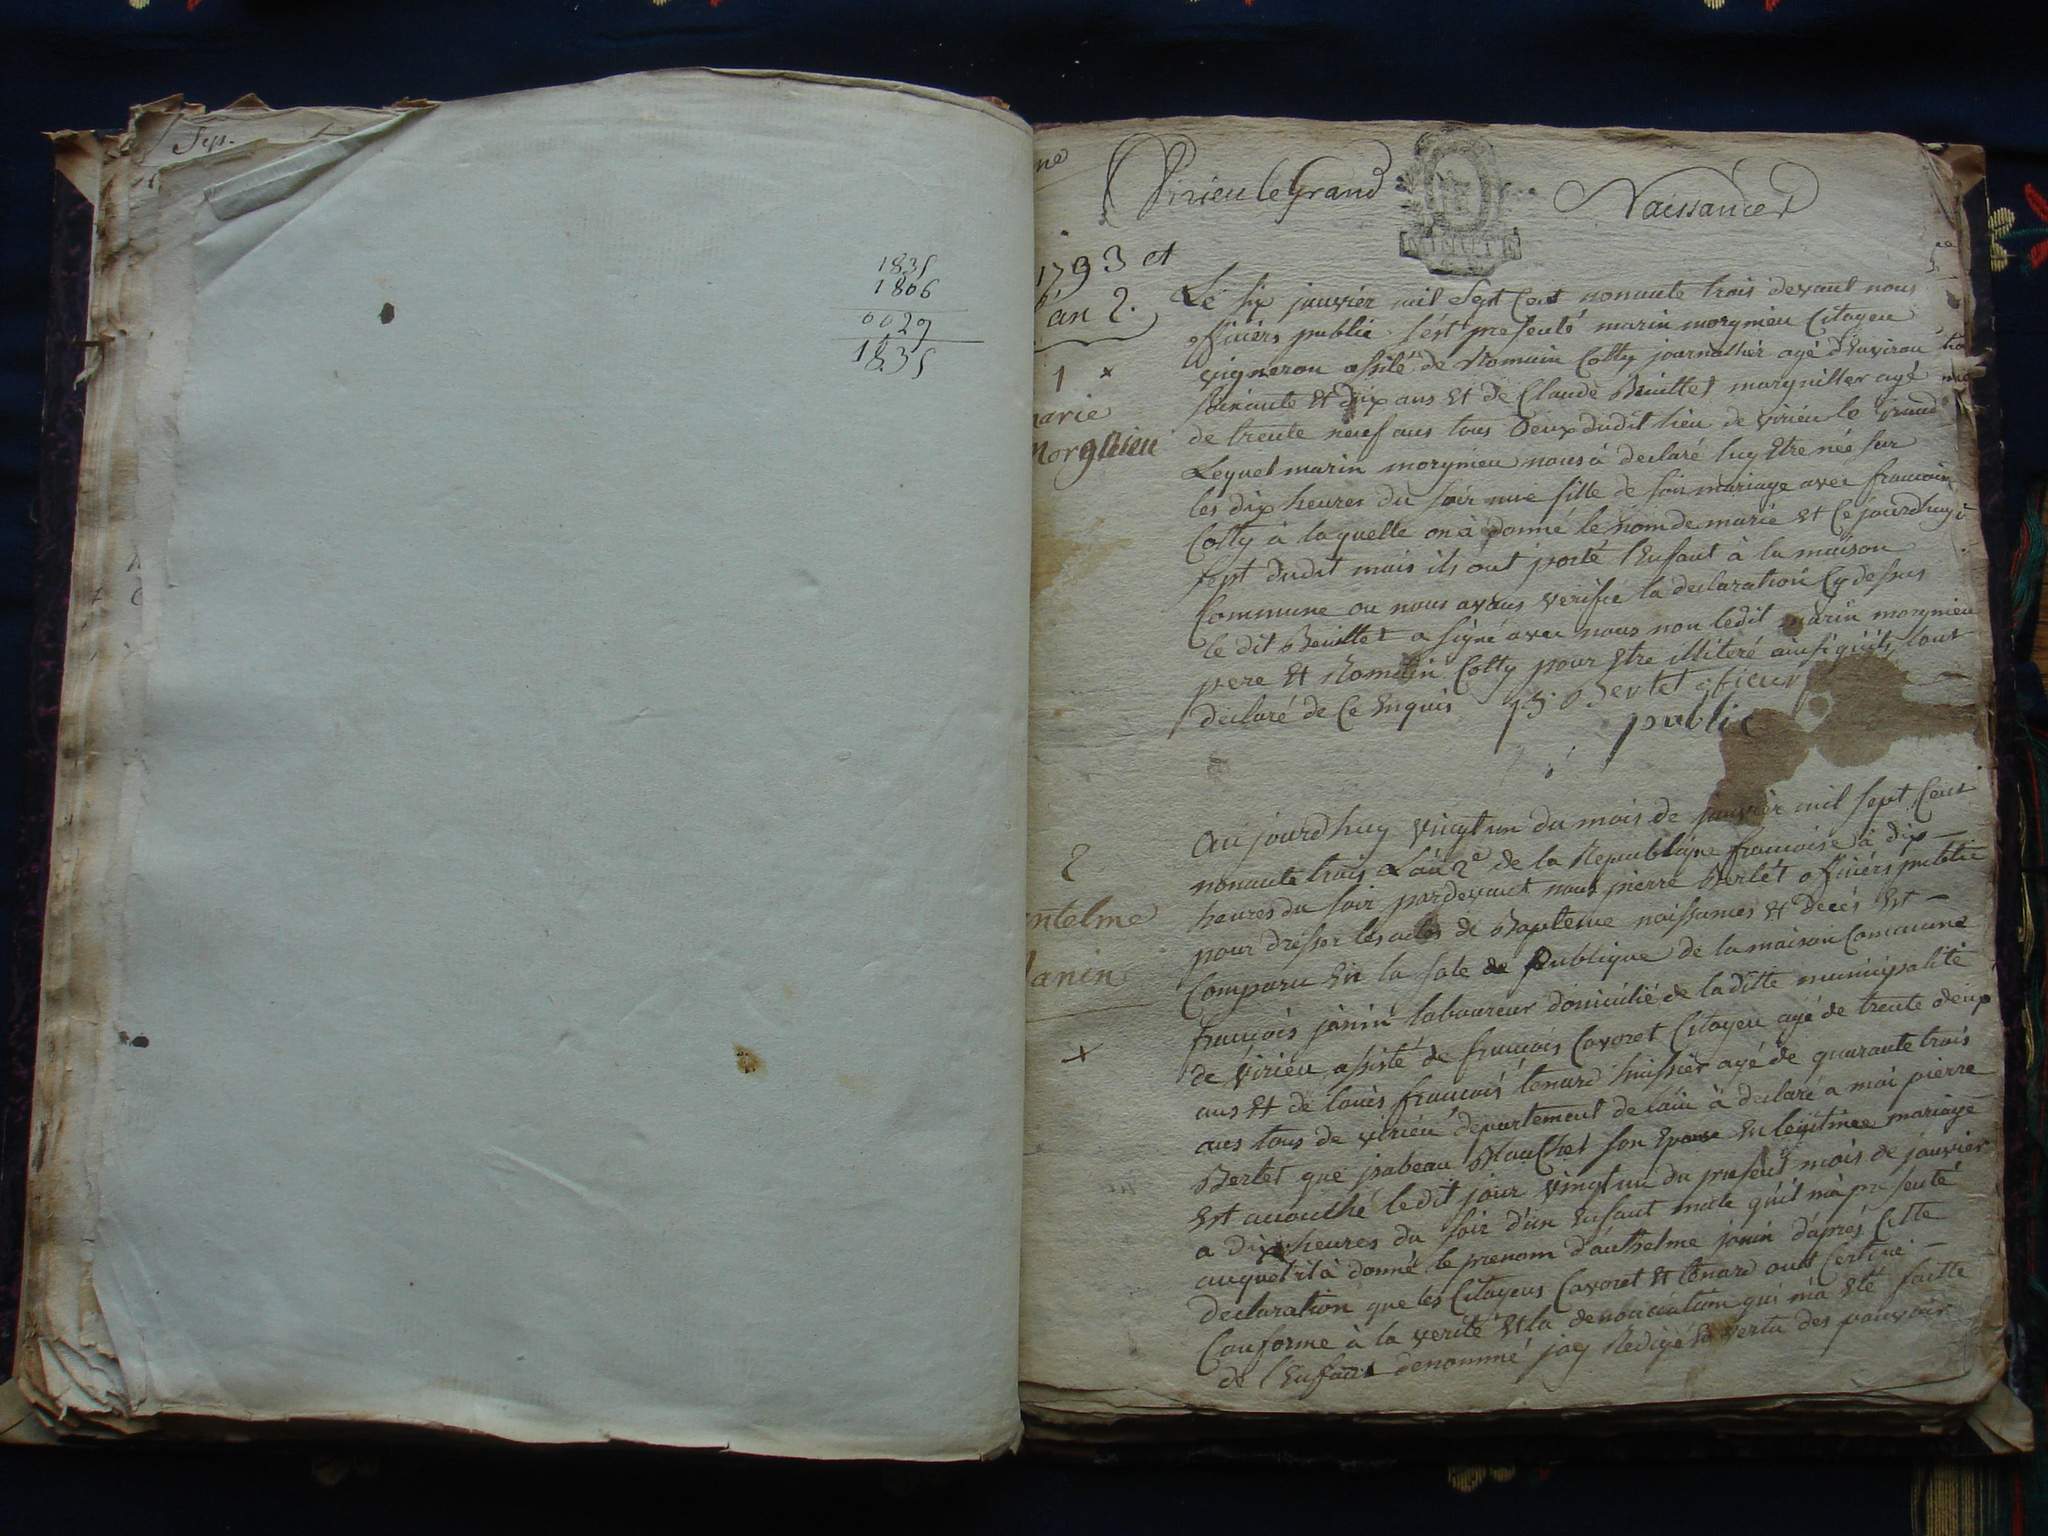 Sep.
1835
1806
0029
1835
Virieu le Grand
Naissances
1793 et
an 2.
1 x
marie
Morgnieu
Le six janvier mil Sept Cent nonante trois devant nous
officiers public s'est presenté marin morgnieu Citoyen
vigneron assité de Romain Cotty journallier agé d'Environ
soixante et dix ans Et de Claude Bouillet margnillier agé
de trente neuf ans tous Deux dudit lieu de virieu le Grand
Lequel marin morgnieu nous à declaré luy Etre née sur
les dix heures du soir une fille de son mariage avec francoise
Cotty à laquelle on à donné le nom de marie Et Ce jourdhuy
sept dudit mois ils ont porté l'Enfant à la maison
Commune ou nous avons verifié la declaration Cy dessus
le dit Bouillet a signé avec nous non ledit marin morgnieu
pere Et Romain Cotty pour Etre illiteré ainsi qu'ils l'ont
declaré de Ce Enquis Bertet officier
public
2
antelme
Janin
x
Aujourdhuy vingt un du mois de janvier mil sept Cent
nonante trois L'an 2e de la Republique francoise à dix
heures du soir pardevant nous pierre Bertet officiers public
pour dresser les actes de Bapteme naissances Et Decés Est
Comparu En la sale de Publique de la maison Commune
françois janin laboureur domicilié de la ditte municipalité
de Virieu assisté de francois Cavoret Citoyen agé de trente deux
ans Et de louis francois tenard huissier agé de quarante trois
ans tous de virieu departement de l'ain à declaré a moi pierre
Bertet que isabeau Blanchet son Epouse En legitime mariage
Est accouché ledit jour vingt un du present mois de janvier
a Dix heures du soir d'un Enfant male qu'il m'a presenté
auquel il à donné le prenom d'anthelme janin d'après Cette
declaration que les Citoyens Cavoret Et tenard ont Certifié
Conforme à la verité Et la denonciation qui m'a Eté faitte
de l'Enfant denommé jaÿ Redigé En vertu des pouvoir